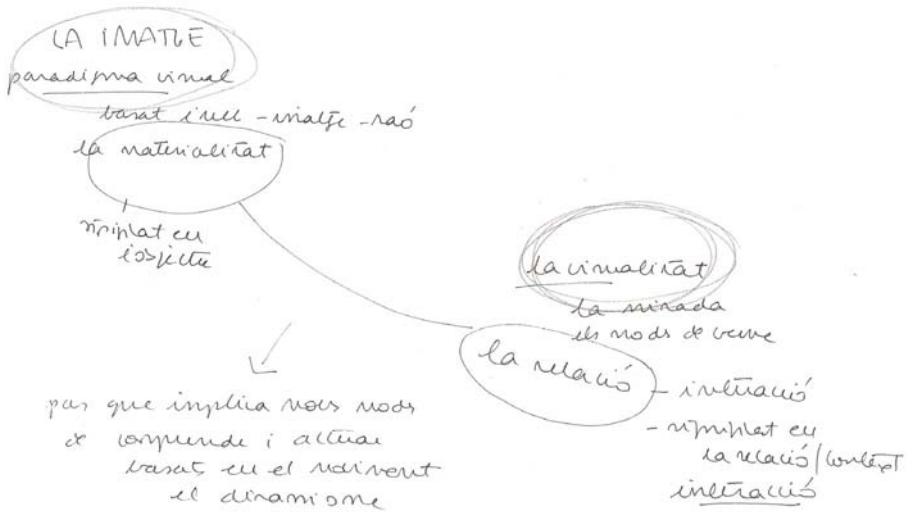 LA IMATGE
paradigma visual
basat i ull - imatge - raó
la materialitat
significat en
l'objecte
la visualitat
la mirada
els mods de veure
la relació
- interacció
- significat en
la relació/context
interacció
pas que implica nous mods
de comprendre i actuar
basats en el moviment
el dinamisme